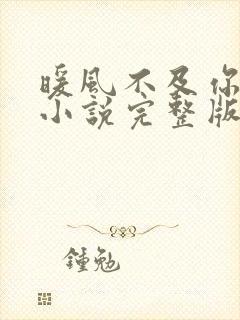 暖風不及你
小說完整版
鍾勉